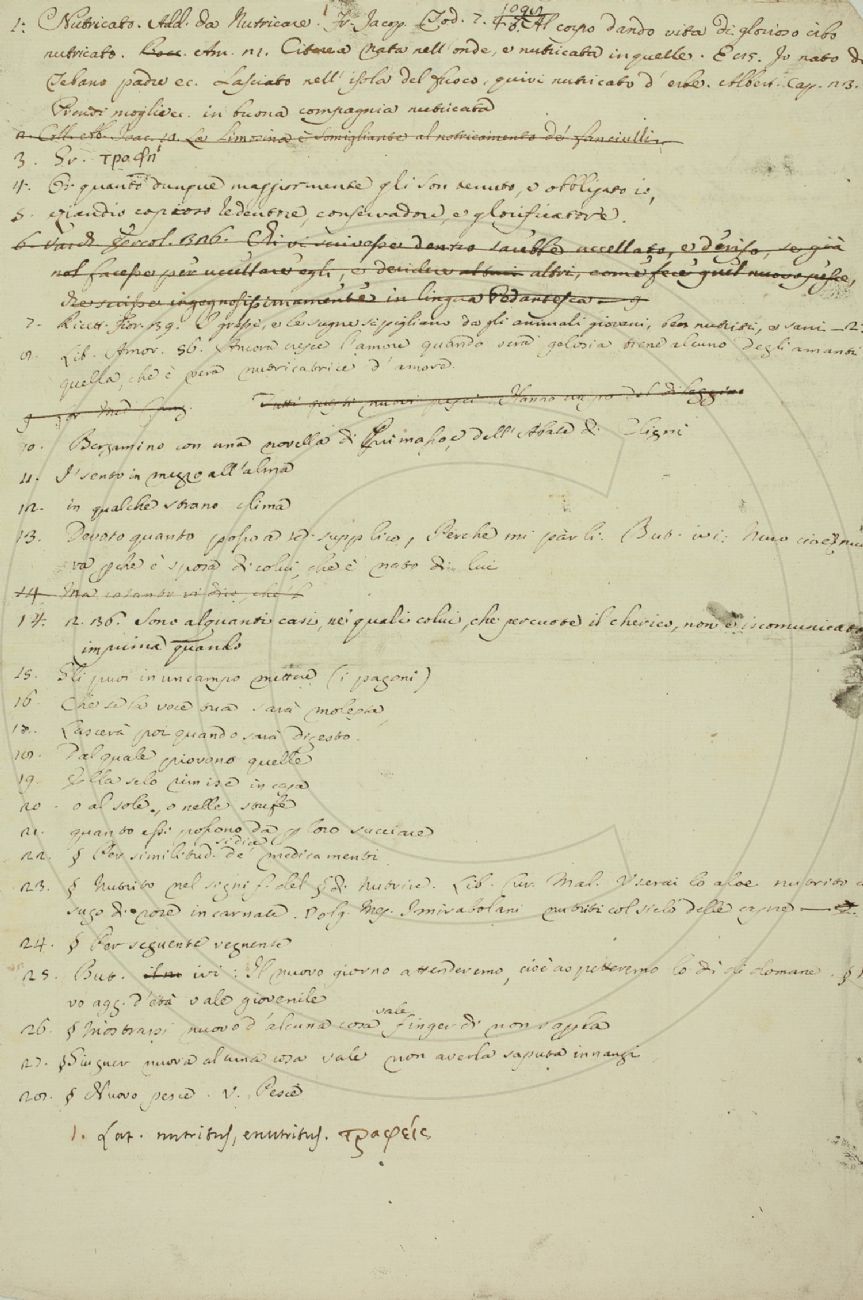 1: Nutricato. Add. da Nutricare. Fr. Jacop. Tod. 7. Al corpo dando vita di glorioso cibo
nutricato. Citerea nata nell'onde, e nutricata in quelle. E 15. Io nato di
Tebano padre ec. Lasciato nell'isola del fuoco, quivi nutricato d'erbe. Albert. Cap. 23.
Prendi moglie ec. in buona compagnia nutricata
2. Coll. Ab. Isac. 10. La limosina è somigliante al notricamento de' fanciulli
3. Gr. τραφη
4. quanto dunque maggiormente gli son tenuto, e obbligato io,
5. Redentore, conservadore, e glorificatore.
6. Varch. Ercol. Chi vi scrivesse dentro sarebbe uccellato, e deriso, se già
nol facesse per uccellare egli, e deridere altri, come fece quel nuovo pesce,
che scrisse ingegnosissimamente in lingua Pedantesca
7. Ricett. Fior. 39. I grassi, e le sugne si pigliano da gli animali giovani, ben nutriti, e sani
8. Lib. Amor. 56. Ancora cresce l'amore quando vera gelosia tiene alcuno degli amanti
quella, che è vera nutricatrice d'amore.
9 Tutti questi nuovi pesci Hanno un po' del
10. Bergamino con una novella di Primasso, e dell'Abate di Clignì
11. I' sento in mezzo all'alma
12. in qualche strano clima
13. Devoto quanto posso a te supplico, Perchè mi parli. But. ivi: Nuro cioè nuo
ra pche è sposa di colui, che è nato di lui
14. Ma
14. n. 136. Sono alquanti casi, ne' quali colui, che percuote il cherico, non è iscomunicato
imprima quando
15. Gli puoi in un campo mettere (i pagoni)
16. Che se la voce tua sarà molesta
18. Lascerà poi quando sarà digesto.
18. Dal quale piovono quelle
19. Ella se lo rimise in casa
20. o al sole, o nelle stufe
21. quando essi possono da p loro succiare
22. § Per similitud. si dice de' medicamenti
23. § Nutrito nel signif. del § di Nutrire. Lib. Cur. Mal. Userai lo aloe nutrito c
sugo di rose incarnate. Volg. Mes. I mirabolani nutriti col siero delle capre
24. § Per seguente vegnente
25. But. ivi: Il nuovo giorno attenderemo, cioè aspetteremo lo dì di domane. §
vo agg. d'età vale giovenile
26. § Mostrarsi nuovo d'alcuna cosa vale finger di non saperla
27. § Giugner nuova alcuna cosa vale non averla saputa innanzi
28. § Nuovo pesce. V. Pesce
1. Lat. nutritus, enutritus. τραφείς